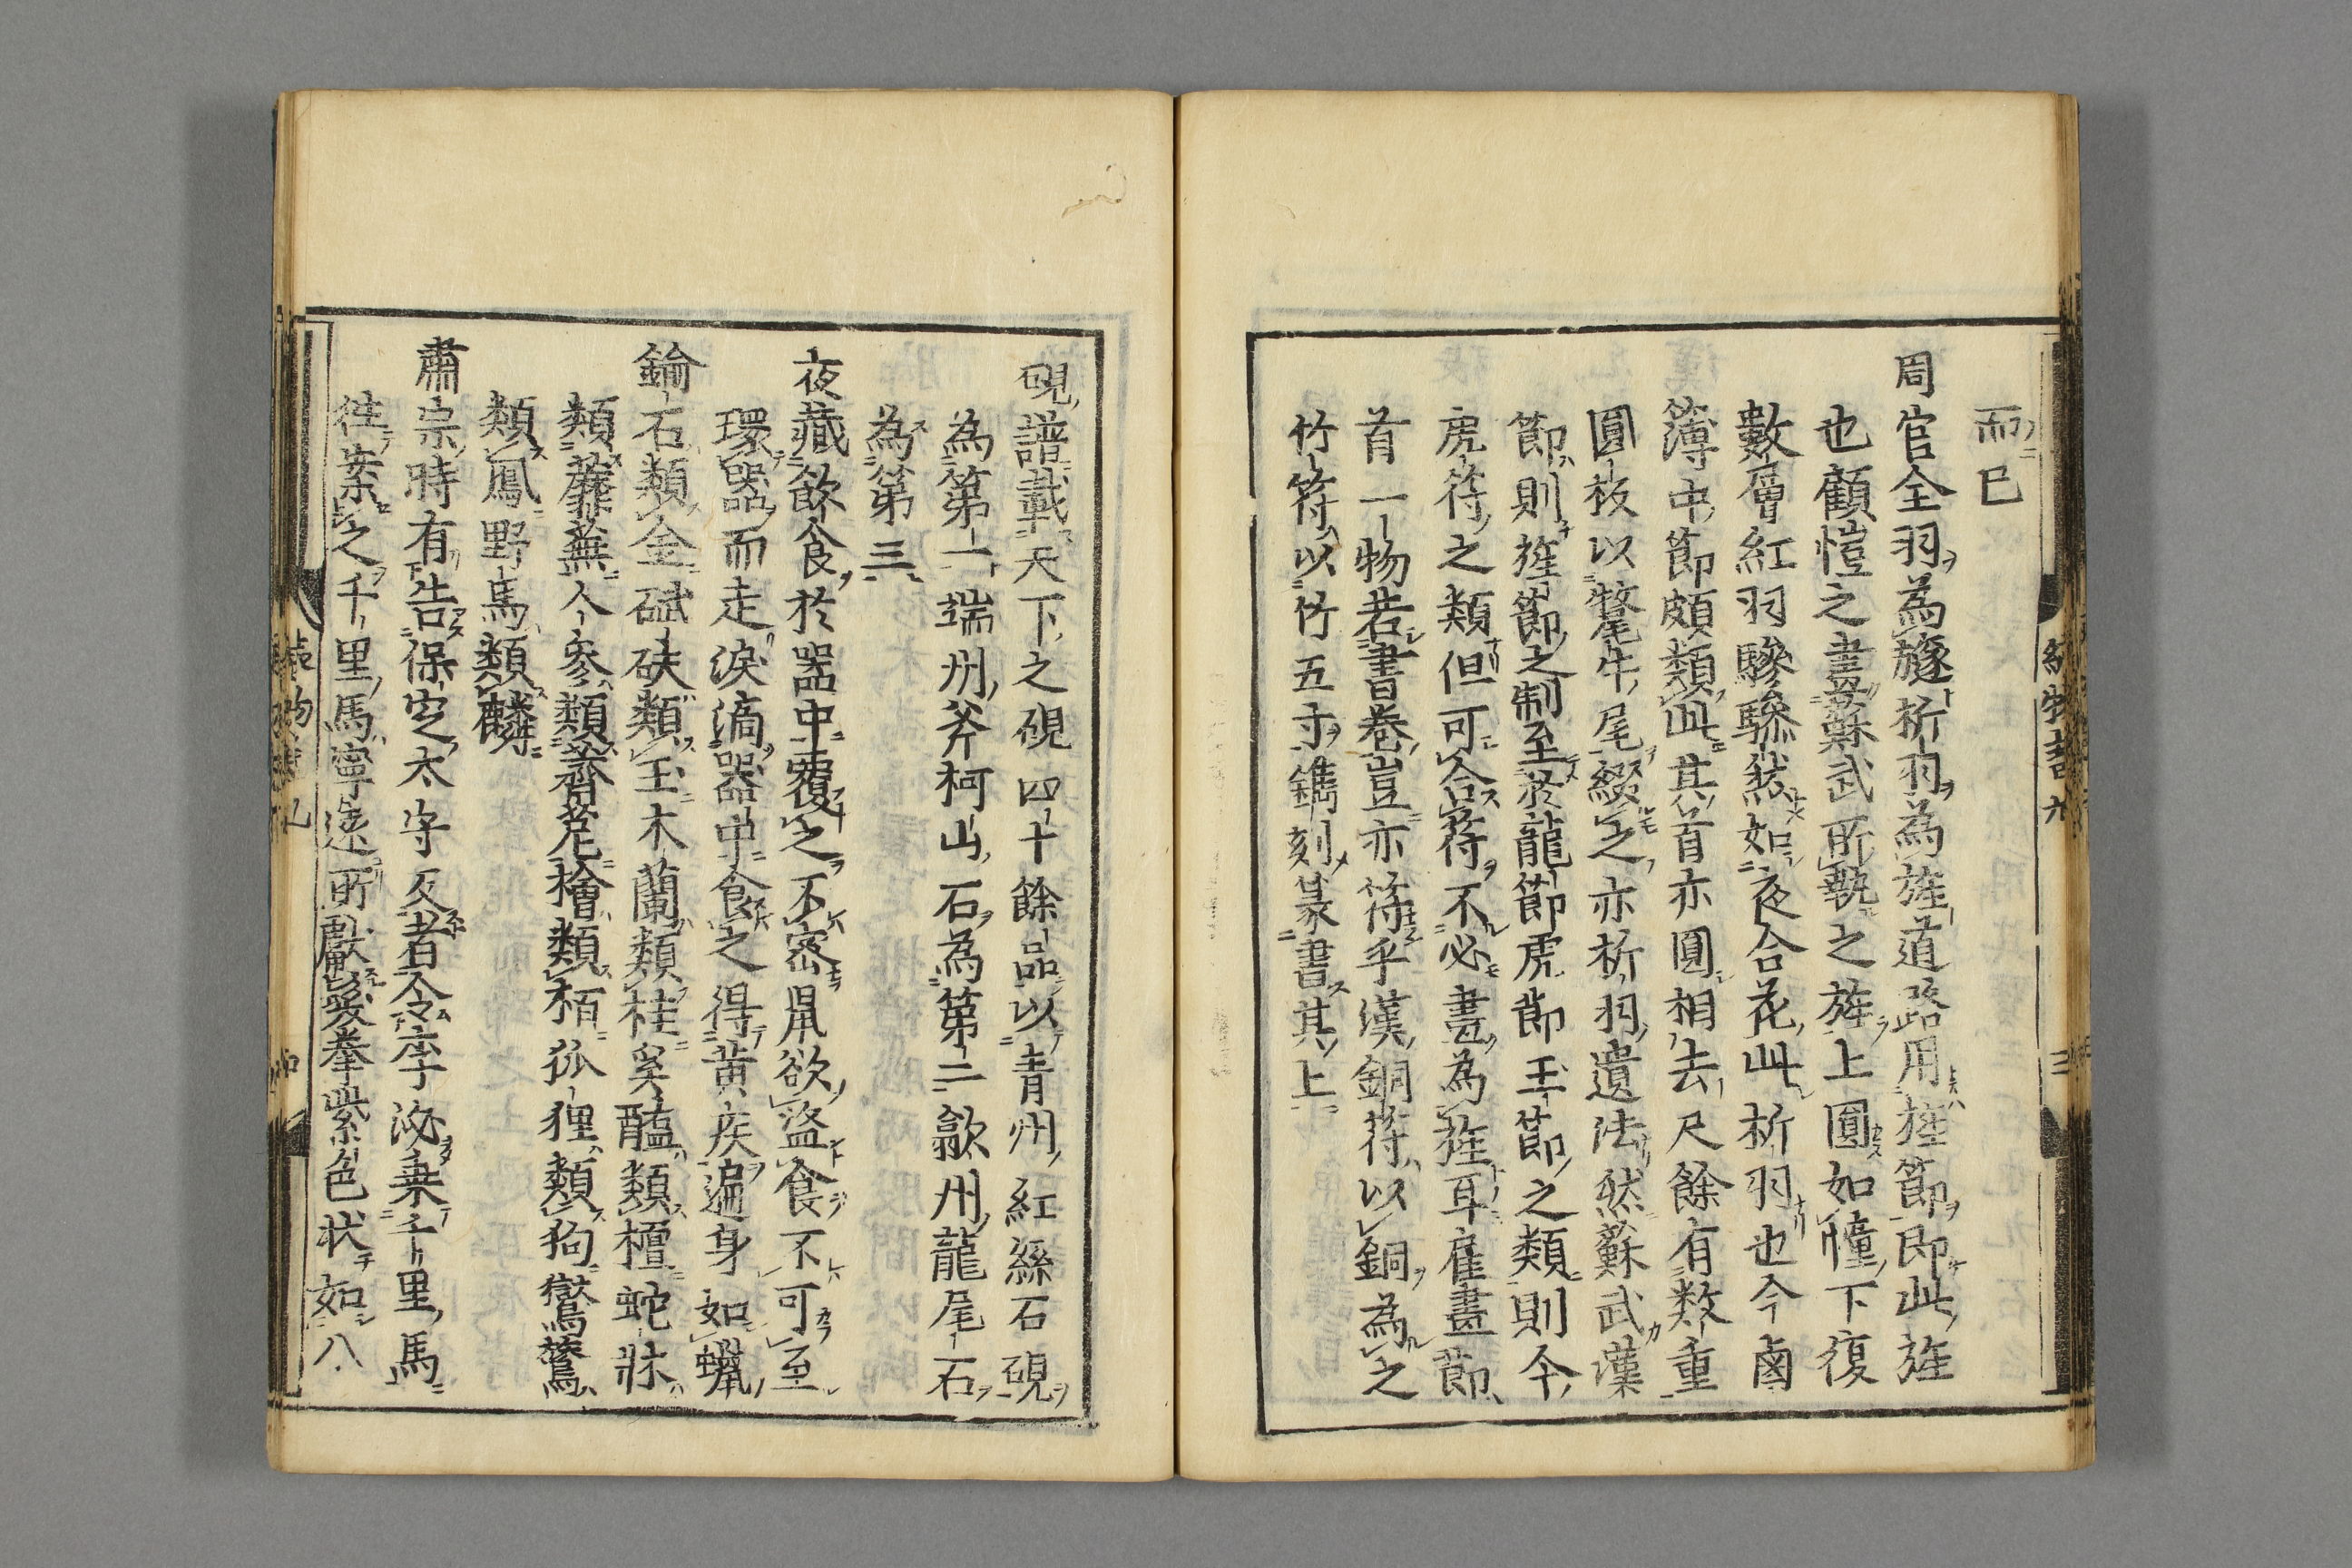 而已
周官全羽為旞析羽為旌道路用旌節即此旌
也顧愷之畫蘇武所執之旌上圓如幢下復
數層紅羽鬖鬖然如夜合花此析羽也今鹵
簿中節頗類此其首亦圓相去尺餘有数重
圓板以犛牛尾綴之亦析羽遺法然蘇武漢
節則旌節之制至於龍節虎節玉節之類則今
虎符之類但可合符不必畫為旌耳崔畫節
首一物若書卷豈亦符乎漢銅符以銅為之
竹符以竹五寸鐫刻篆書其上
硯譜載天下之硯四十餘品以青州紅絲石硯
為第一端州斧柯山石為第二歙州龍尾石
為第三
夜藏飲食於器中覆之不密鼠欲盜食不可至
環器而走淚滴器中食之得黄疾遍身如蠟
鍮石類金碔砆類玉木蘭類桂奚醯類檀蛇牀
類蘼蕪人參類薺苨檜類栢狐狸類狗鸑鷟
類鳳野馬類麟
肅宗時有告保定太守反者令李泌乗千里馬
徃案之千里馬寧遠所獻髮拳紫色状如八